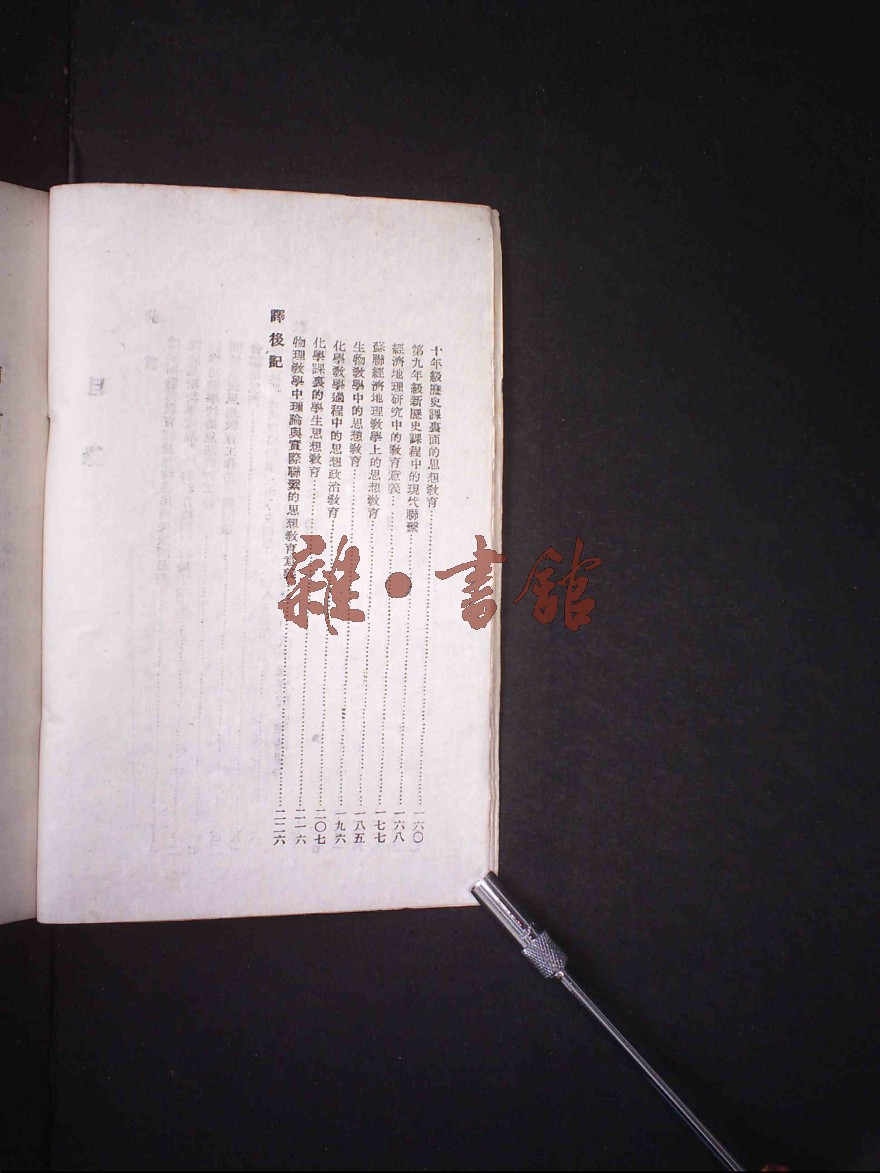 十年級歷史課裏面的思想教育……一六〇
第九年級新歷史課程中的現代聯繫……一六八
經濟地理研究中的教育意義……一七七
蘇聯經濟地理教學上的思想教育……一八五
生物教學中的思想教育……一九六
化學教學過程中的思想政治教育……二〇七
化學課裏的學生思想教育……二一六
物理教學中理論與實際聯繫的思想教育意義……二二六
譯後記
雜·書館